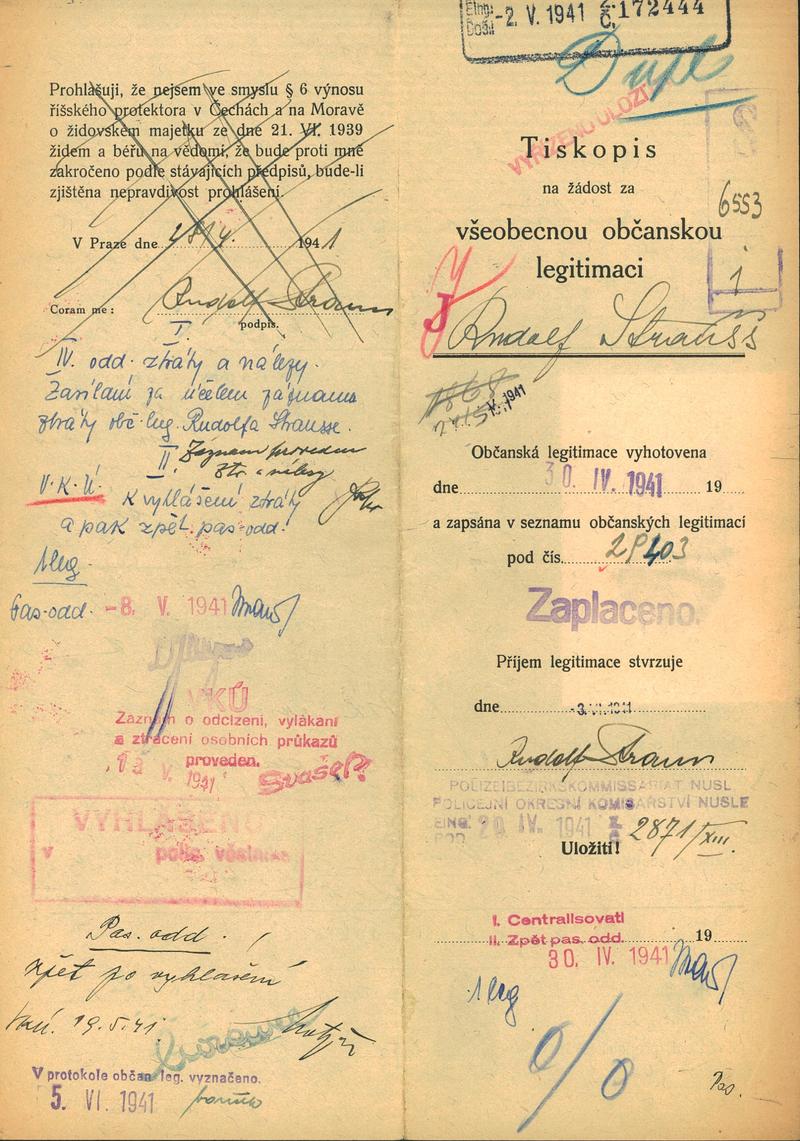 Prohlašuji, že nejsem ve smyslu § 6 výnosu
říšského protektora v Čechách a na Moravě
o židovském majetku ze dne 21. VI. 1939
židem a béřu na vědomí, že bude proti mně
zakročeno podle stávajících předpisů, bude-li
zjištěna nepravdivost prohlášení.
V Praze dne 1941
Coram me:
Rudolf Strauss
podpis.
I.
IV. odd. ztráty a nálezy.
Zasílám za účelem záznamu
ztráty obč. leg. Rudolfa Strausse.
II. Záznam proveden
V. K. Ú.
K vyhlášení ztráty
a pak zpět pas. odd.
1 leg.
Pas. odd. -8. V. 1941
VKÚ
Záznam o odcizení, vylákání
a ztracení osobních průkazů
proveden.
V. 1941
VYHLÁŠENO
v polic. věstníku
Pas. odd.
zpět po vyhlášení
19.5.41.
V protokole občan. leg. vyznačeno.
5. VI. 1941
Došl.
-2. V. 1941 Č. 172444
Dupl
VYŘÍZENO ULOŽIT
Tiskopis
na žádost za
všeobecnou občanskou
legitimaci
6553
1
J
J
Rudolf Strauss
V. 1941
Občanská legitimace vyhotovena
dne 30. IV. 1941 19
a zapsána v seznamu občanských legitimací
pod čís. 29403
Zaplaceno.
Příjem legitimace stvrzuje
dne
Rudolf Strauss
POLIZEIBEZIRKSKOMMISSARIAT NUSL
POLICEJNÍ OKRESNÍ KOMISAŘSTVÍ NUSLE
EING. 29. IV. 1941
POD.
Uložiti! 2871/XIII.
I. Centralisovati
II. Zpět pas. odd. 19
30. IV. 1941
1 leg
0/0